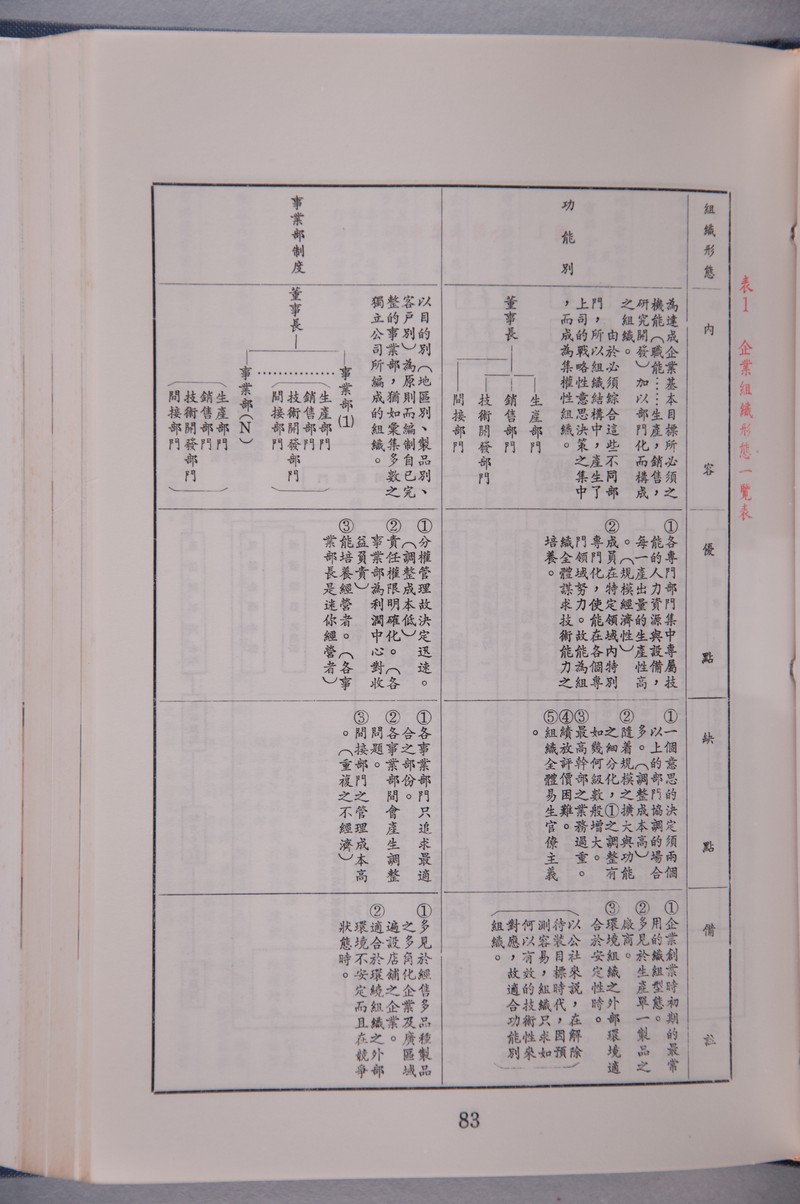 表1 企業組織形態一覽表
組織形態
內容
優點
缺點
備註
功能別
為達成企業基本目標所必須之
機能(職能……生產,銷售,
研究開發)加以部門化而構成
之組織。
由於必須綜合這些不同部
門,所以組織結構中,產生了
上司的戰略性意思決策之集中
,而成為集權性組織。
董事長
生產部門
銷售部門
技術開發部門
間接部門
①各專門部門集中專屬技
能的人力資源與設備,
每一產出量的生產性高
。(規模經濟性)
②成員在特定領域內特別
專門化,使能在各個專
門領域努力。故能為組
織全體謀求技術能力之
培養。
①一個意思的決定須兩個
以上的部門協調的場合
多。(調整成本高)
②隨着規模之擴大與功能
之細分化,①之調整有
如幾何級數般增大。
③最高幹部之業務過重。
④績效評價困難。
⑤組織全體易生官僚主義
。
①企業創業時初期的最常
用的組織型態。
②多見於生產單一製品之
廠商。
③環境組織之外部環境適
合於安定性時。
(以公社來說,在解除
待裝目標時代,因預
測容易,組織只求如
何以有效的技術性來
對應,故適合功能別
組織。)
事業部制度
以目的別(地區別、製品別、
客戶別)為原則而編制自己完
整的事業部,猶如彙集多數之
獨立公司所編成的組織。
董事長
事業部(1)
生產部門
銷售部門
技術開發部門
間接部門
事業部(N)
生產部門
銷售部門
技術開發部門
間接部門
①分權管理故決定迅速。
(調整成本低)
②責任權限明確化。(各
事業部為利潤中心對收
益員責)
③能培養經營者。(各事
業部長是迷你經營者)
①各事業部門只追求最適
合之部份。
②各事業部間會產生調整
問題。
③間接部門之管理成本高
。(重複之不經濟)
①多見於經售多品種製品
之多角化企業及廣區域
遍設店舖之企業。
②適合於環繞組織之外部
環境不安定而且在競爭
狀態時。
83